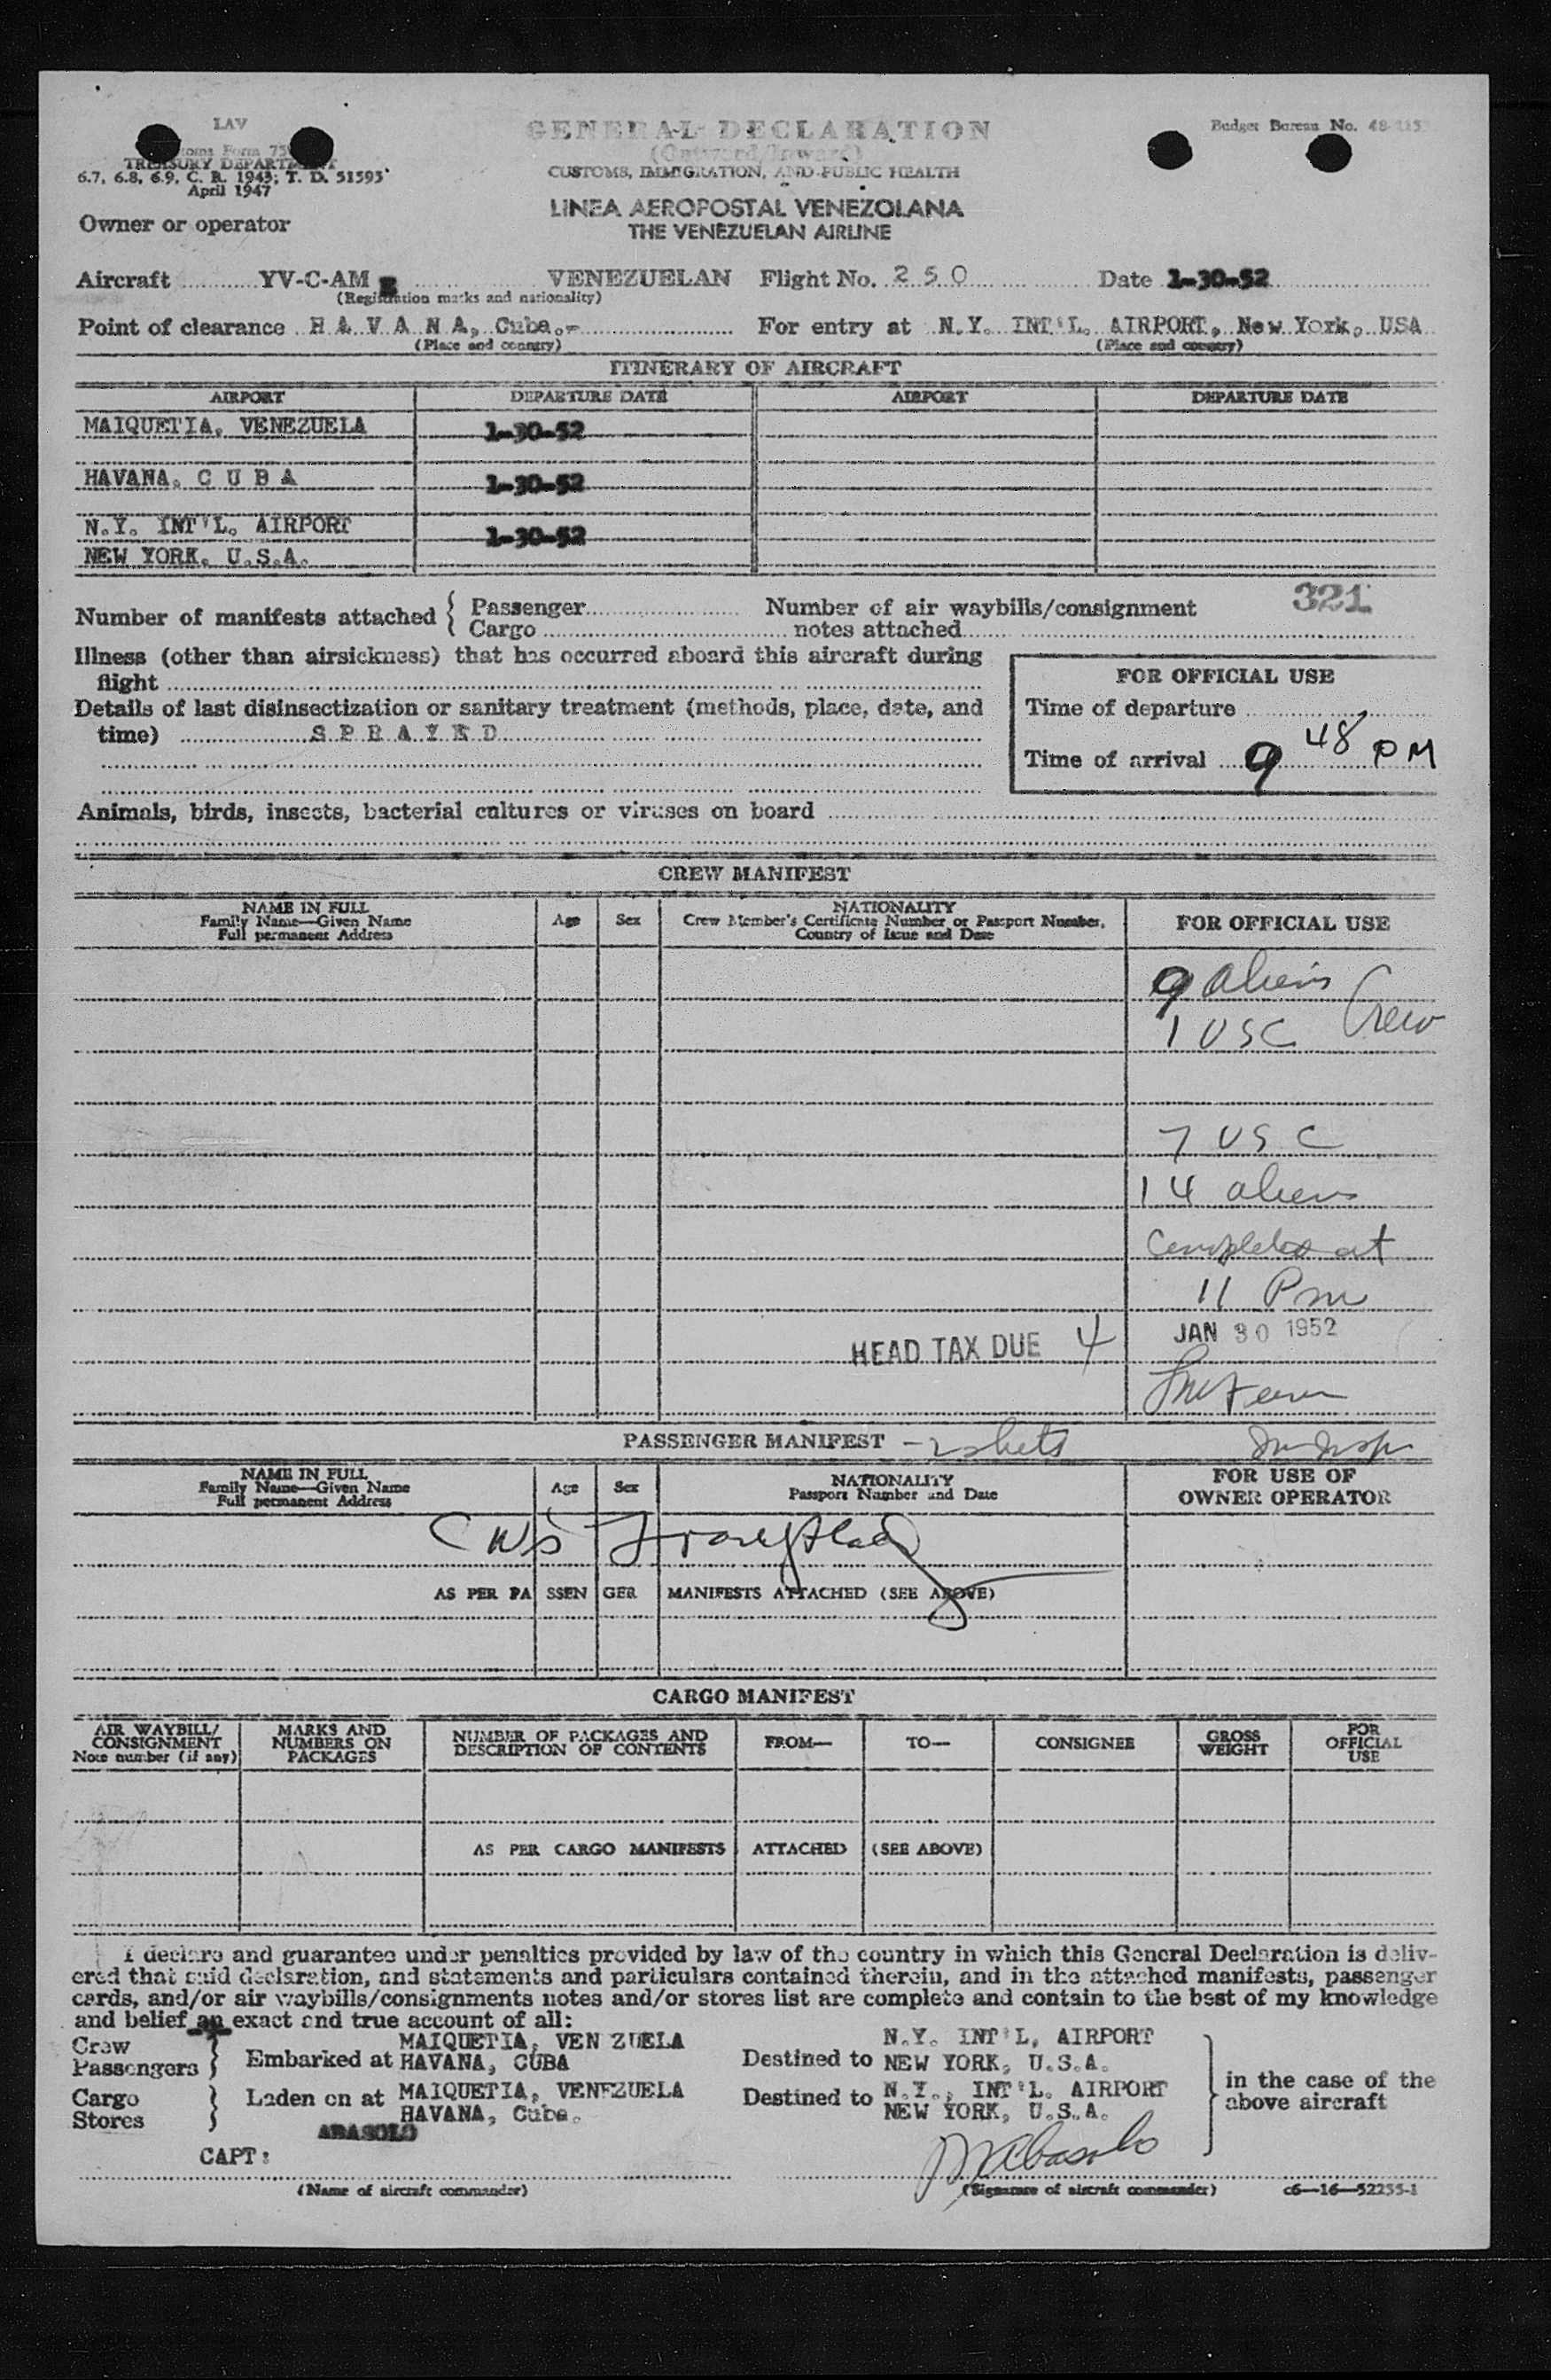 LAV
GENERAL DECLARATION
Budget Bureau No.
(Outward/Inward)
TREASURY DEPARTMENT
CUSTOMS, IMMIGRATION, AND PUBLIC HEALTH
6.7, 6.8, 6.9, C. R. 1943; T. D. 51593
April 1947
LINEA AEROPOSTAL VENEZOLANA
Owner or operator
THE VENEZUELAN AIRLINE
Aircraft YV-C-AM VENEZUELAN Flight No. 250 Date 1-30-52
(Registration marks and nationality)
Point of clearance H A V A N A, Cuba.- For entry at N.Y. INT'L. AIRPORT, New York, USA
(Place and country) (Place and country)
ITINERARY OF AIRCRAFT
AIRPORT DEPARTURE DATE AIRPORT DEPARTURE DATE
MAIQUETIA, VENEZUELA 1-30-52
HAVANA, C U B A 1-30-52
N.Y. INT'L. AIRPORT 1-30-52
NEW YORK, U.S.A.
321
Number of manifests attached { Passenger Number of air waybills/consignment
Cargo notes attached
Illness (other than airsickness) that has occurred aboard this aircraft during
flight
FOR OFFICIAL USE
Details of last disinsectization or sanitary treatment (methods, place, date, and
time) S P R A Y E D
Time of departure
Time of arrival 9 48 PM
Animals, birds, insects, bacterial cultures or viruses on board
CREW MANIFEST
NAME IN FULL
Family Name—Given Name
Full permanent Address
Age Sex
NATIONALITY
Crew Member's Certificate Number or Passport Number,
Country of Issue and Date
FOR OFFICIAL USE
9 aliens
1 USC Crew
7 USC
14 aliens
Completed at
11 Pm
HEAD TAX DUE 4
JAN 30 1952
PASSENGER MANIFEST
NAME IN FULL
Family Name—Given Name
Full permanent Address
Age Sex
NATIONALITY
Passport Number and Date
FOR USE OF
OWNER OPERATOR
AS PER PASSENGER MANIFESTS ATTACHED (SEE ABOVE)
CARGO MANIFEST
AIR WAYBILL/
CONSIGNMENT
Note number (if any)
MARKS AND
NUMBERS ON
PACKAGES
NUMBER OF PACKAGES AND
DESCRIPTION OF CONTENTS
FROM—
TO—
CONSIGNEE
GROSS
WEIGHT
FOR
OFFICIAL
USE
AS PER CARGO MANIFESTS ATTACHED (SEE ABOVE)
I declare and guarantee under penalties provided by law of the country in which this General Declaration is deliv-
ered that said declaration, and statements and particulars contained therein, and in the attached manifests, passenger
cards, and/or air waybills/consignments notes and/or stores list are complete and contain to the best of my knowledge
and belief an exact and true account of all:
Crew
Passengers } Embarked at MAIQUETIA, VEN ZUELA
HAVANA, CUBA
Destined to N.Y. INT'L, AIRPORT
NEW YORK, U.S.A.
Cargo
Stores } Laden on at MAIQUETIA, VENEZUELA
HAVANA, Cuba.
Destined to N.Y., INT'L. AIRPORT
NEW YORK, U.S.A.
in the case of the
above aircraft
ABASOLO
CAPT:
(Name of aircraft commander) (Signature of aircraft commander) c6—16—52255-1